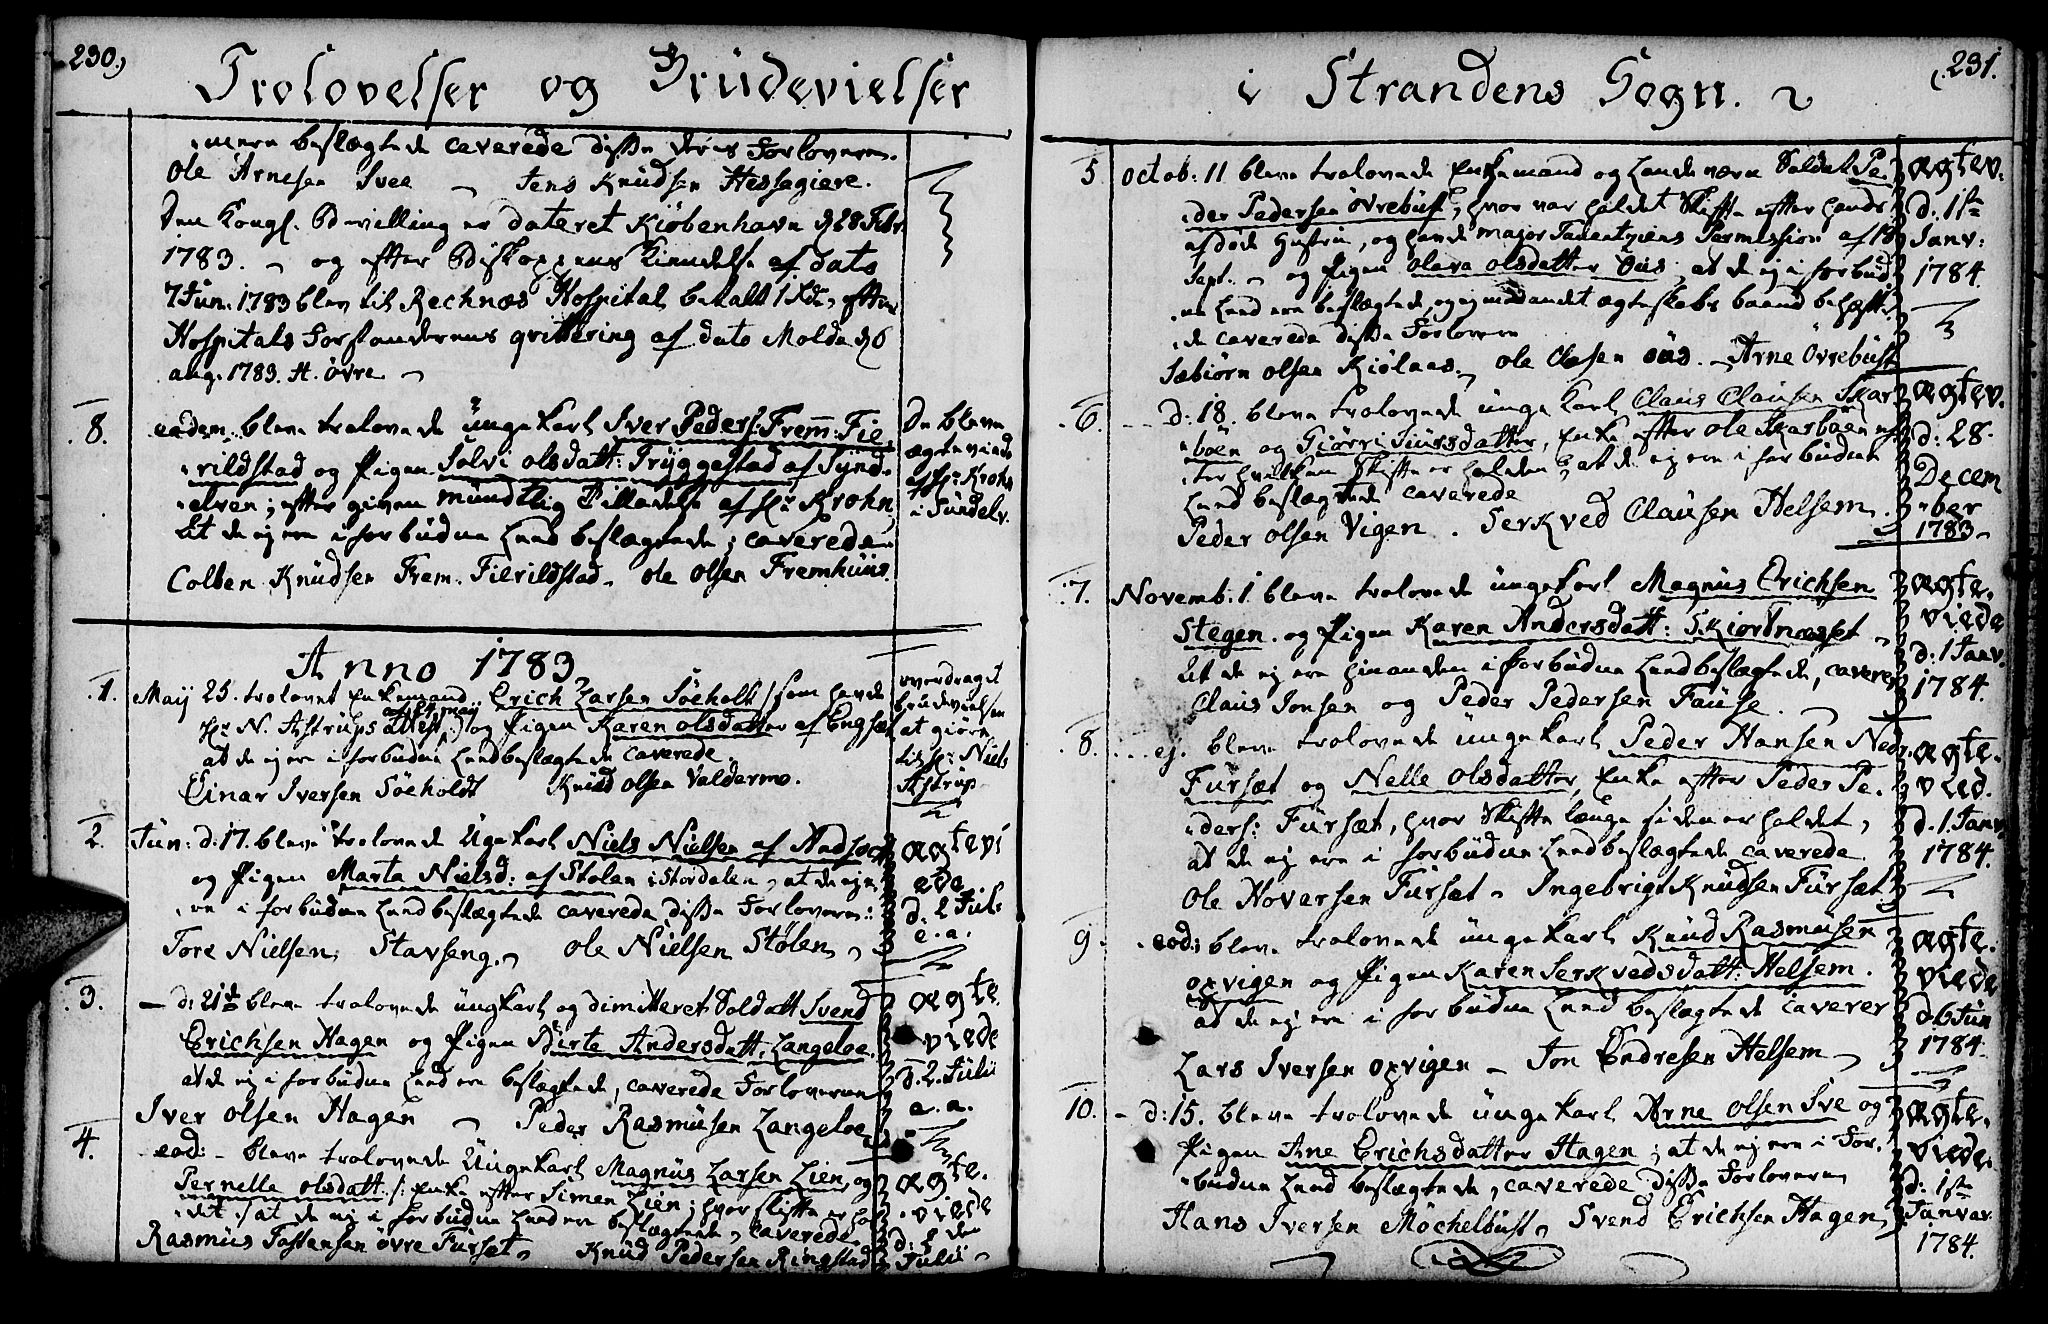 230.
Trolovelser og Brüdevielser
nære beslægtede caverede disse deres Forlovere.
Ole Arnesen Svee – Jens Knudsen Hessagiere.
Den Kongl. Bevilling er dateret Kiøbenhavn d 28 Febr.
1783. – og efter Biskoppens Kiendelse af dato
7 Jun. 1783 blev til Rechnæs Hospital betalt 1 Rdr, efter
Hospitals Forstanderens qvittering af dato Molde d 6
aug. 1783. H. Øvre –
8. eadem. bleve trolovede ungekarl Iver Peders: Frem: Fie
rildstad og Pigen Solvi olsdatt: Tryggestad af Synd-
elven; efter given mündtlig Tilladelse af Hr Krohn,
at de ej ere i forbudne Leed beslægtede; caverede
Colben Knüdsen Frem. Fierildstad – ole olsen Fremhuus.
De bleve
ægteviede
af Hr: Krohn
i Sündelv.
Anno 1783
1. Maij 25. trolovet Enkemand Erich Larsen Søeholt / som havde
Hr N. Astrüps attest af 24 maij /) og Pigen Karen olsdatter af Engset
at de ej ere i forbudne Leed beslægtede caverede
Einar Iversen Söeholdt Knüd olsen Valdermo.
overdraget
brudevielsen
at giøre
til Hr: Niels
Astrup
2. Jun: d: 17. bleve trolovede Ungekarl Niels Nielsen af
og Pigen Marta Nielsd: af Stolen i Stordalen, at de ej
ere i forbudne Leed beslægtede caverede disse Forlovere:
Tore Nielsen Stavseng. Ole Nielsen Stølen
ægtevi
ede.
d: 2 Jul:
e. a.
3. – d: 21de bleve trolovede ungkarl og dimitteret Soldatt Svend
Erichsen Hagen og Pigen Birte Andersdatt, Langeloe.
at de ej i forbudne Leed ere beslægtede, caverede Forloverne
Iver olsen Hagen – Peder Rasmüsen Langeloe
ægte.
viede
d. 2. Julii
a. a.
4. eod: – bleve trolovede Ungekarl Magnüs Larsen Lien, og
Pernelle olsdatt. /: Enke efter Simen Lien; hvor skifte er hol
det :/ at de ej i forbudne Leed ere beslægtede, caverede
Rasmüs Tostensen øvre Fürset – Knüd Pedersen Ringstad
ægte.
viede
d: 2 den
Julii –
231.
i Strandens Sogn.
5 octob: 11 bleve trolovede Enkemand og Landeværn Soldat Pe-
der Pedersen Øvrebüst, hvor var holdet Skifte efter hands
afdøde Hustru, og hands major Permission af 18
Sept. – og Pigen Olava olsdatter Ous at de ej i forbud
ne Leed ere beslægtede, og ej med andet ægteskabs baand behæfte
de caverede disse Forlovere
Sæbiörn olsen Kiølaas. – Ole Olesen Ous. – Arne Övrebüst
ægtev.
d: 1ste
Janv:
1784.
6. – d: 18. bleve trolovede unge Karl Claus Clausen Skar
böen og Giørri Siursdatter, Enke efter Ole Skarboen ef
ter hvilken Skifte er holden; at de ej ere i forbudne
Leed beslægtede caverede
Peder olsen Vigen. Serkved Clausen Helsem.
ægtev.
d: 28.
Decem
ber
1783
7. Novemb: 1 bleve trolovede ungekarl Magnüs Erichsen
Stegen. og Pigen Karen Andersdatt: Skiortnæsset –
at de ej ere hinanden i forbudne Leed beslægtede, caverer
Claus Jonsen og Peder Pedersen Fause.
ægte.
viede
d: 1 Janv.
1784.
8. ej. bleve trolovede ungekarl Peder Hansen Nedr.
Fürsæt og Nelle Olsdatter, Enke efter Peder Pe-
ders: Fürsæt, hvor Skifte længe siden er holdet,
at de ej ere i forbudne Leed beslægtede caverede
Ole Hoversen Fürset – Ingebrigt Knüdsen Fürsæt
ægte.
vied.
d. 1. Janv
1784.
9. eod: bleve trolovede ungekarl Knüd Rasmüsen
opvigen og Pigen Karen Serkvedsdatt: Helsem.
at de ej ere i forbudne Leed beslægtede caverer
Lars Iversen opvigen – Jon Endresen Helsem –
ægte.
viede
D. 6 Jun
1784.
10. – d: 15. bleve trolovede ungekarl Arne Olsen Sve og
Pigen Ane Erichsdatter Hagen; at de ej ere i For-
budne Leed beslægtede, caverede disse Forlovere
Hans Iversen Möchelbüst, Svend Erichsen Hagen
ægte.
viede.
d: 1ste
Janvar
1784.